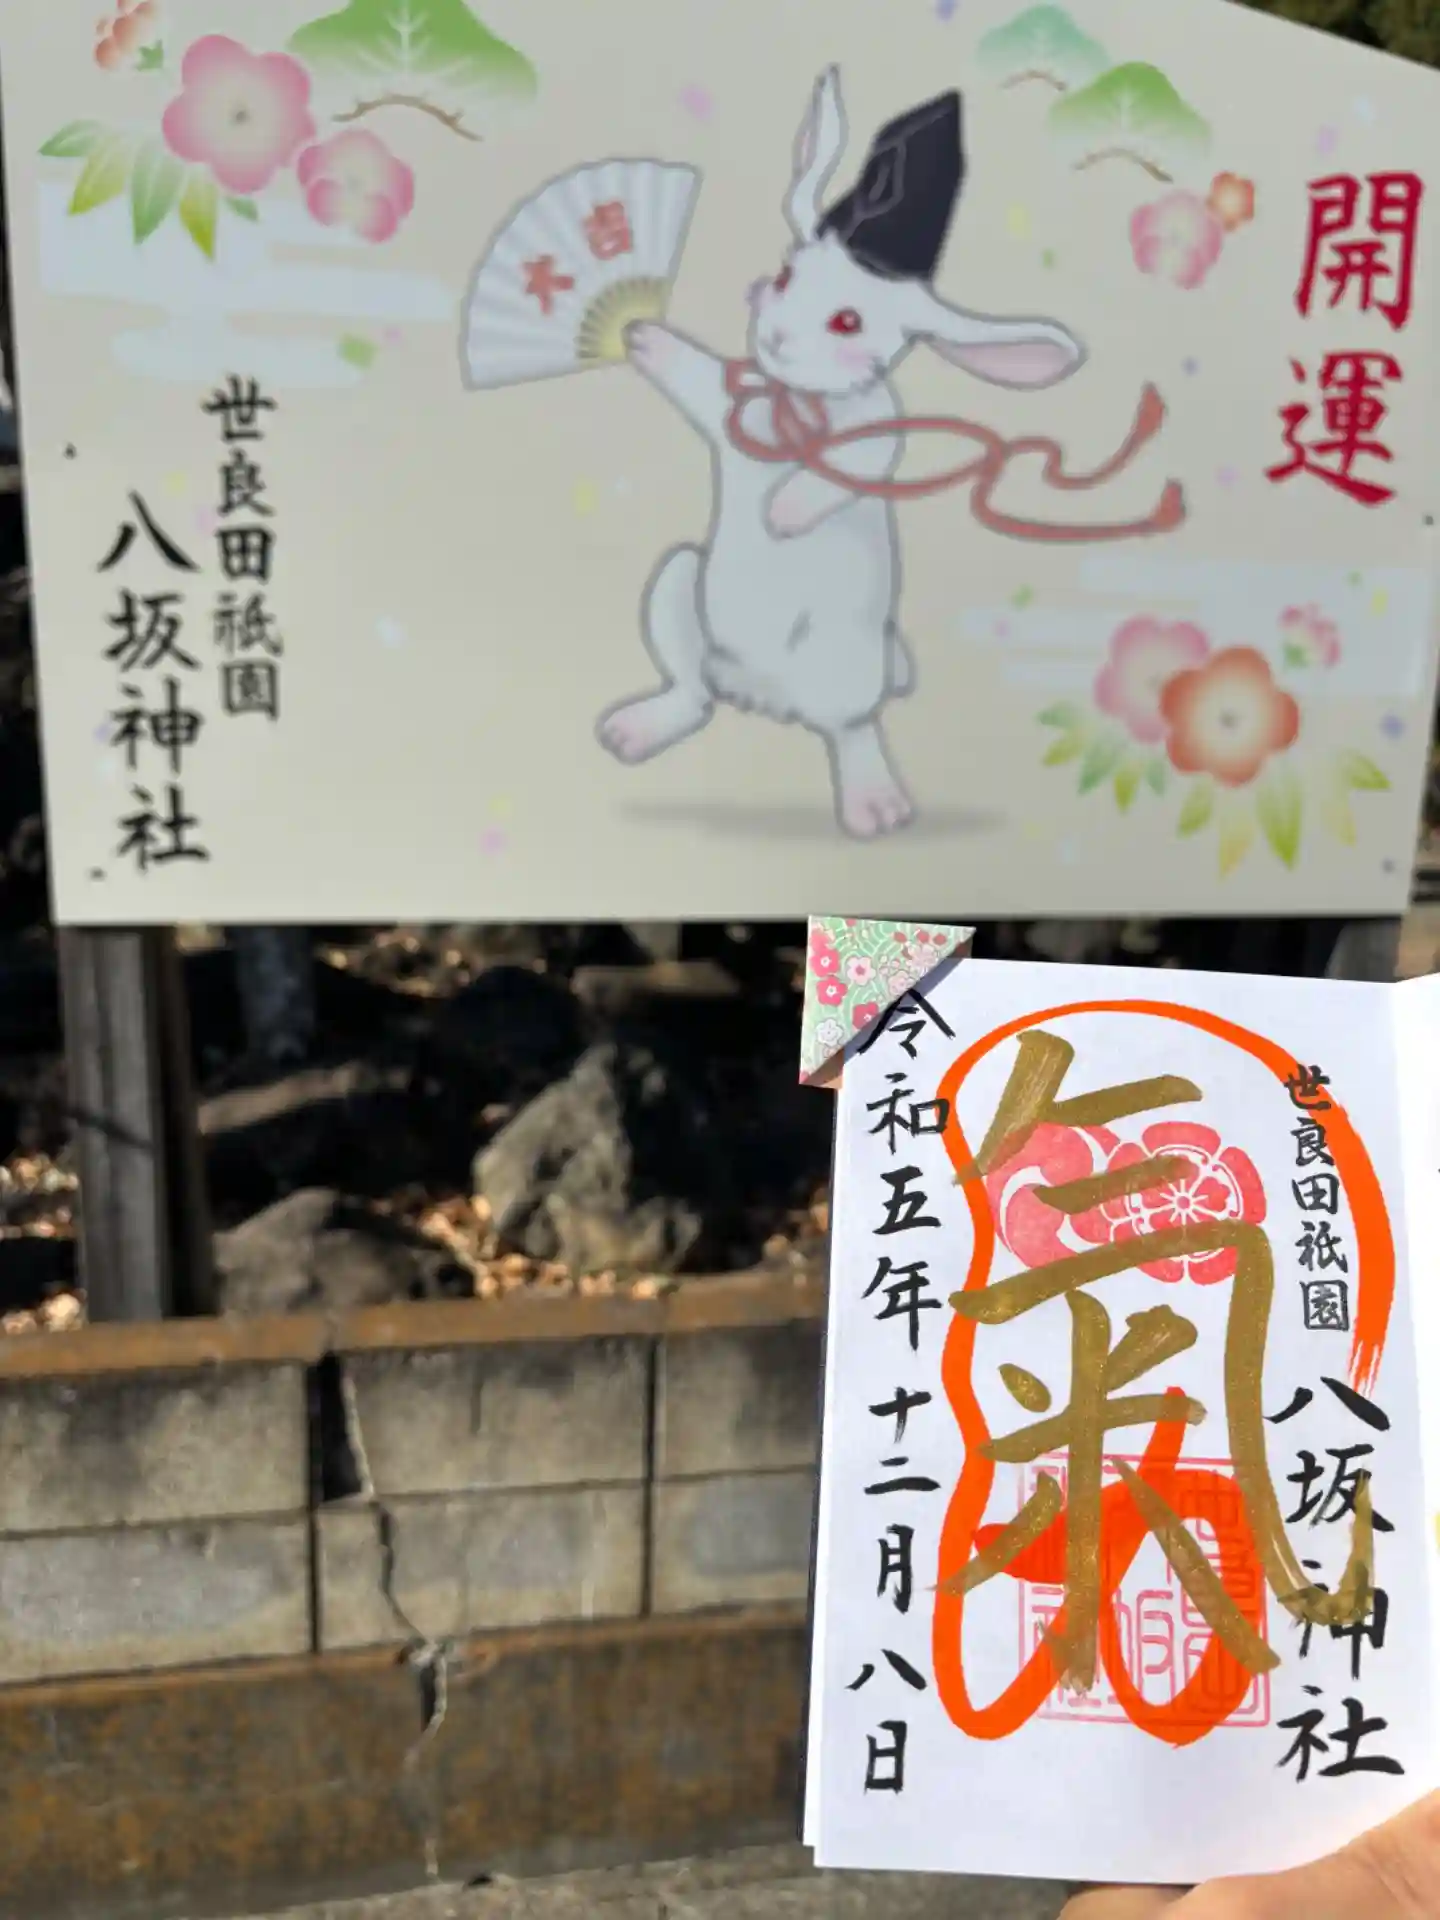 開運
大吉
世良田祇園
八坂神社
世良田祇園
八坂神社
氣
令和五年十二月八日